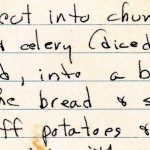 cut into chun
& celery (diced
d, into a b
he bread & s
ff potatoes &